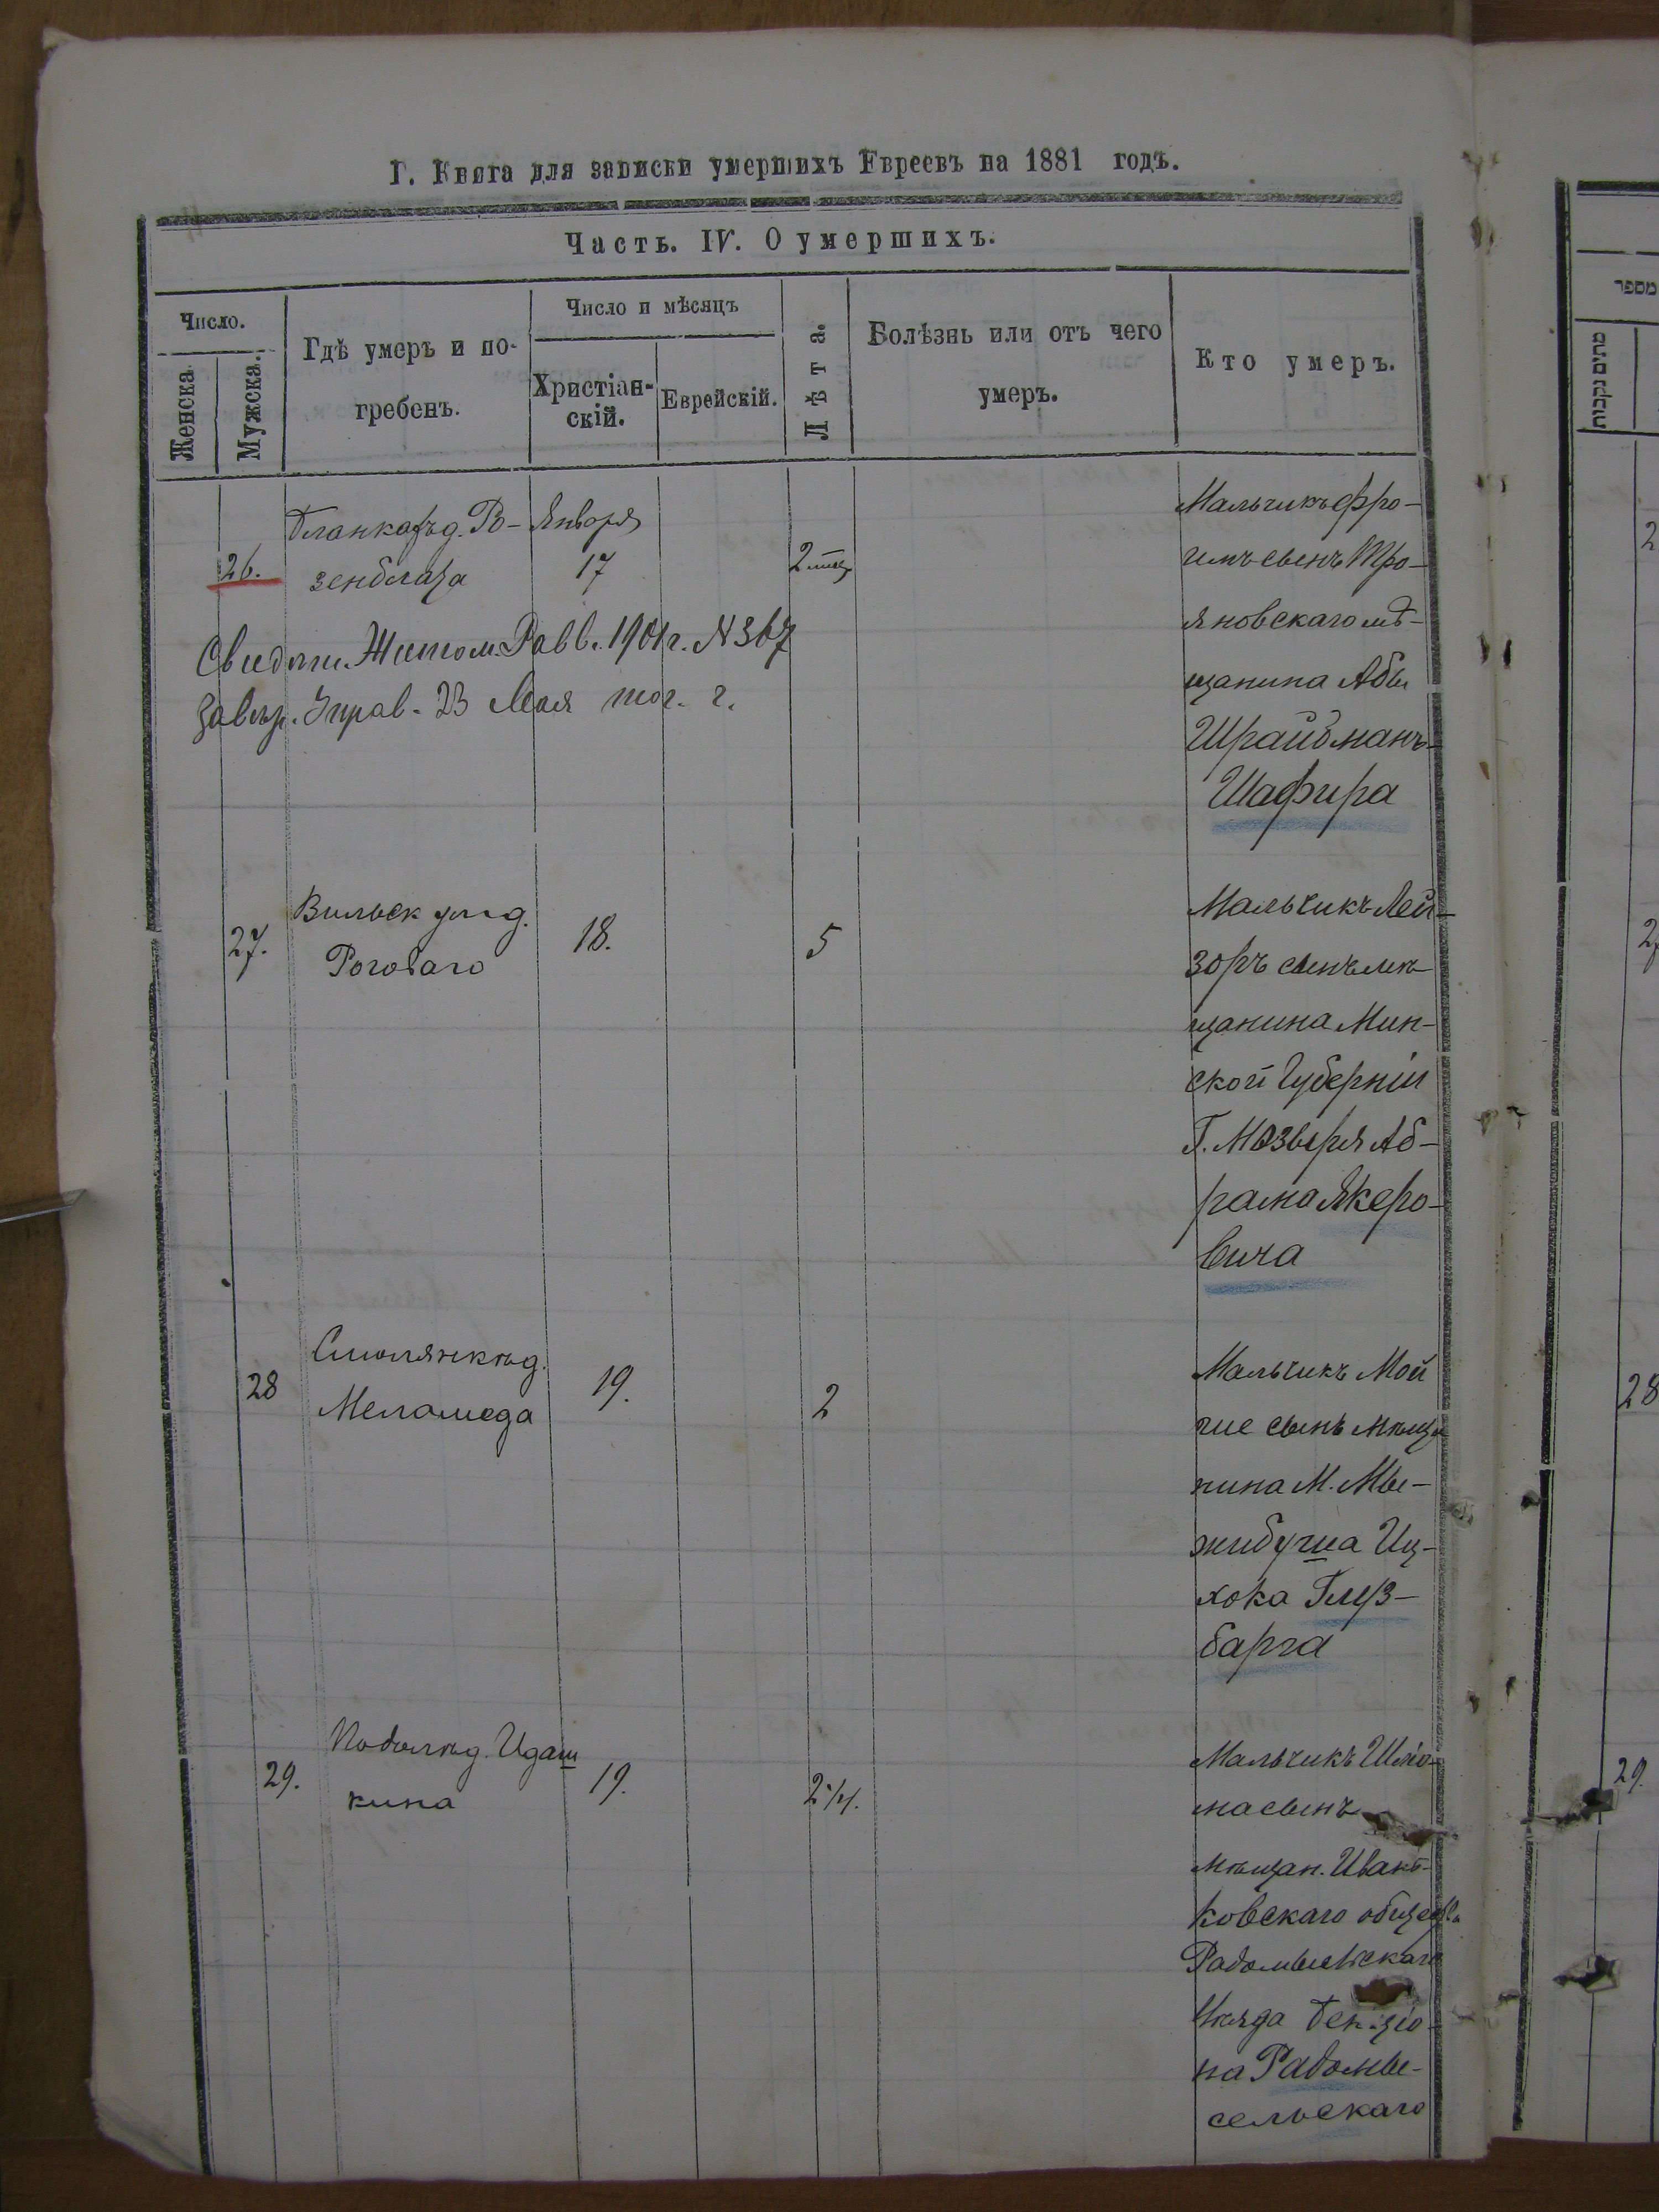 Г. Книга для записки умершихъ Евреевъ на 1881 годъ.
Часть. IV. О умершихъ.
Число.
Женска
Мужска.
Гдѣ умеръ и по-
гребенъ.
Число и мѣсяцъ
Христіан-
скій.
Еврейскій.
Лѣта.
Болѣзнь или отъ чего
умеръ.
Кто умеръ.
26.
д. Ро-
зенблата
Января
17
2
Мальчикъ Фро-
имъ сынъ Тро-
яновскаго мѣ-
щанина Абы
Шрайбманъ-
Шафира
Свидѣт. Житом. Равв. 1901 г. N 367
Завѣр. Управ. 23 Мая тог. г.
27.
Вильск ул. д.
Роговаго
18.
5
Мальчикъ Лей-
зоръ сынъ мѣ-
щанина Мин-
ской Губерніи
Г. Мозыря Аб-
рама Якеро-
вича
28
Смолянкѣ д.
Меламеда
19.
2
Мальчикъ Мой
ше сынъ мѣща
нина М. Мы-
жибужа Иц-
хока Глуз-
барга
29.
Подолкѣ д. Идаш
кина
19.
2
Мальчикъ Шлю-
ма сынъ
мѣщан. Иван-
ковскаго общества
Радомысльскаго
Уѣзда Бен-ціо-
на Радомы-
сельскаго
מספר
מתים נקבות
2
2
28
29.